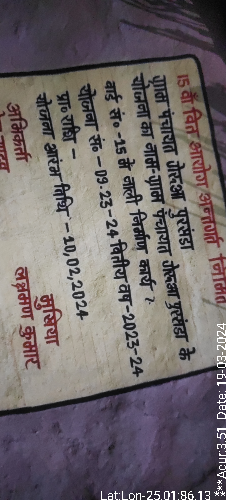 15 वीं वित्त आयोग अन्तर्गत निर्मित
ग्राम पंचायत गेरुआ पुरसंडा
योजना का नाम-ग्राम पंचायत गेरुआ पुरसंडा के
वार्ड सं० -15 में नाली निर्माण कार्य ।
योजना सं० - 03.23-24 वित्तीय वर्ष -2023-24
प्रा० राशि -
योजना आरंभ तिथि - 10,02,2024
अभिकर्ता
मुखिया
लक्ष्मण कुमार
Lat:Lon-25.01:86.13
***Acur:3.51, Date: 19-03-2024